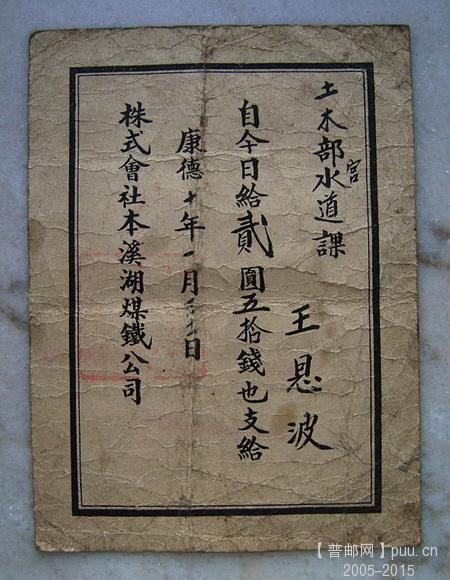 土木部水道課
宮
王恩波
自今日給貳圓五拾錢也支給
康德十年一月 日
株式會社本溪湖煤鐵公司
【普邮网】puu.cn
2005-2015